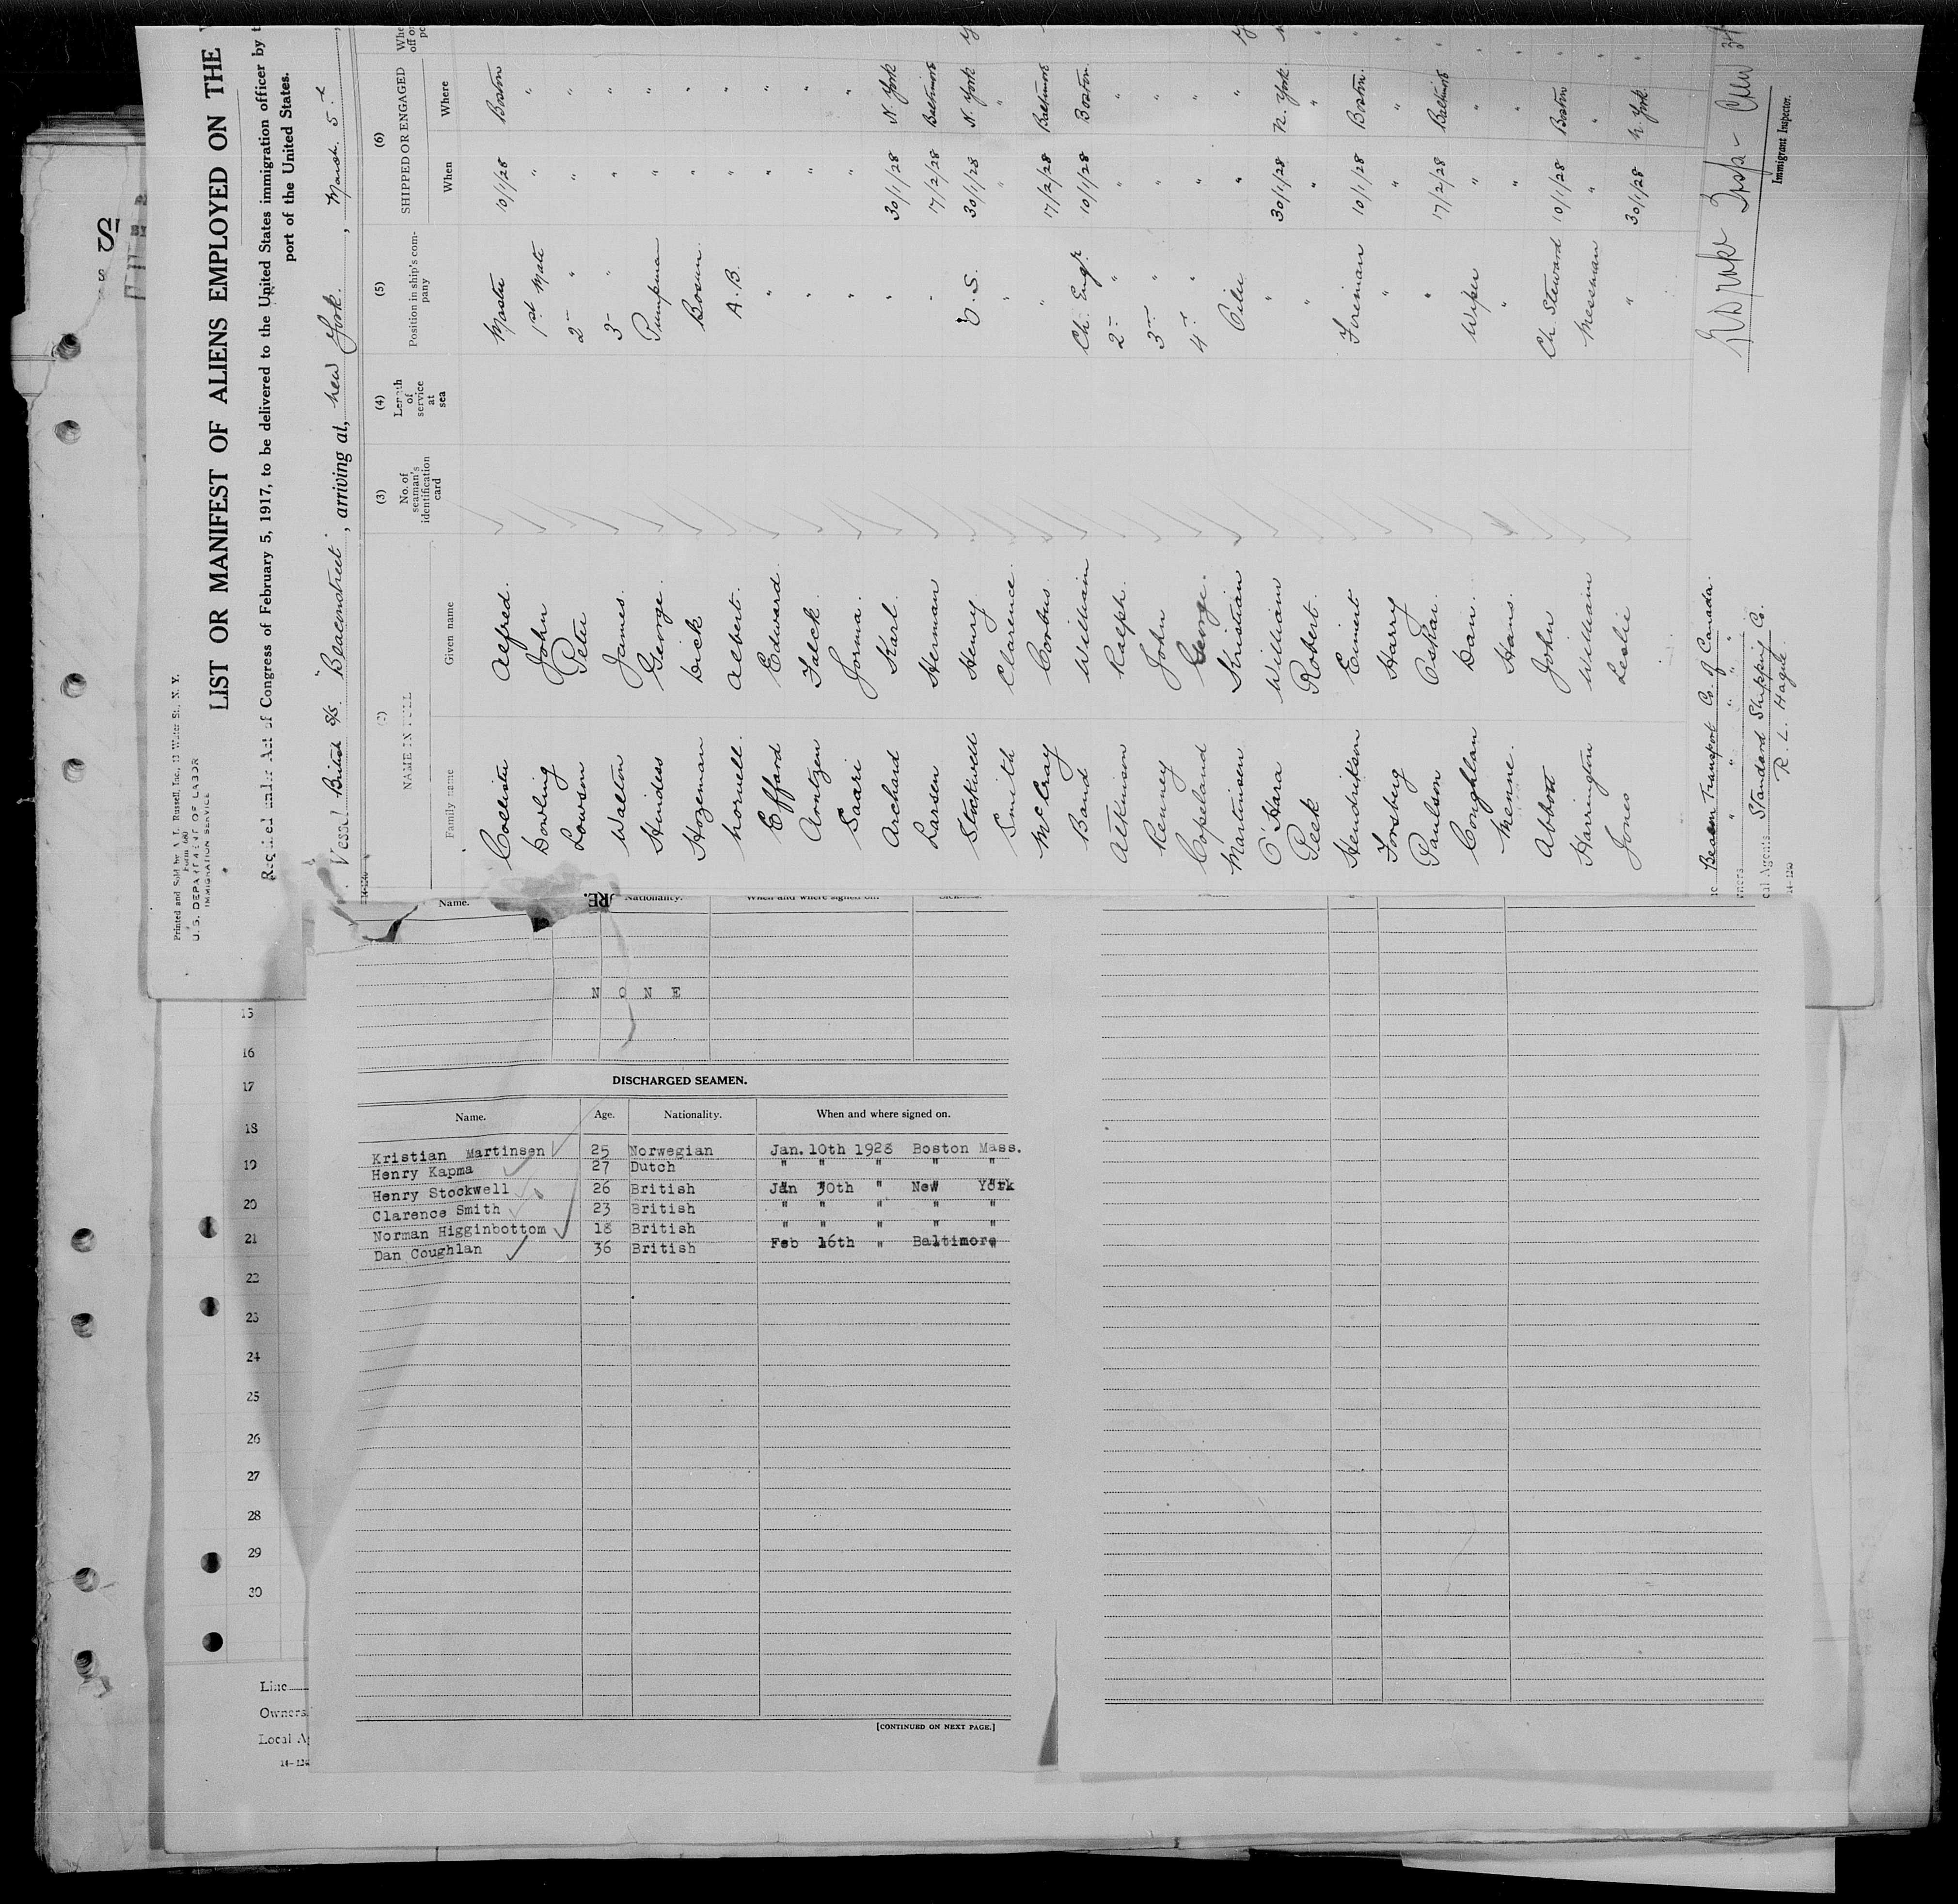 Printed and Sold by A. L. Russell, Inc., 13 Water St., N. Y.
Form 680
U. S. DEPARTMENT OF LABOR
IMMIGRATION SERVICE
LIST OR MANIFEST OF ALIENS EMPLOYED ON THE
Required under Act of Congress of February 5, 1917, to be delivered to the United States immigration officer by
port of the United States.
Vessel British S/S. "Beaconstreet", arriving at, New York., March. 5th
(2) (3) (4) (5) (6)
NAME IN FULL No. of seaman's identification card Length of service at sea Position in ship's company SHIPPED OR ENGAGED
Family name Given name When Where
Collister Alfred. Master 10/1/28 Boston
Dowling John 1st Mate " "
Lowson Peter 2- " " "
Walton James. 3- " " "
Hindess George. Pumpman " "
Hozeman Dick Bosun. " "
Normell. Albert. A. B. " "
Effard Edward. " " "
Arntzen Falck. " " "
Saari Jorma. " " "
Archard Karl. " 30/1/28 N. York
Larsen Herman " 17/2/28 Baltimore
Stockwell Henry O. S. 30/1/28 N. York
Smith Clarence. " " "
McCray Corbus. " 17/2/28 Baltimore
Band William Ch. Engr. 10/1/28 Boston.
Atkinson Ralph. 2- " "
Kenney John 3- " " "
Copeland George. 4- " " "
Martinsen Kristian Oiler " "
O'Hara William " 30/1/28 N. York.
Peek Robert. " " "
Hendrikson Emiert Fireman 10/1/28 Boston.
Forsberg Harry " " "
Paulson Oskar. " 17/2/28 Baltimore
Coughlan Dan. Wiper " "
Menne. Hans. " " "
Abbott John Ch. Steward 10/1/28 Boston
Harrington William Messman " "
Jones Leslie " 30/1/28 N. York.
Beacon Transport Co. of Canada.
" " " " "
Local Agents Standard Shipping Co.
R. L. Hague.
14-1240
Immigrant Inspector.
Name. Nationality. When and where signed on.
N O N E
DISCHARGED SEAMEN.
Name. Age. Nationality. When and where signed on.
Kristian Martinsen 25 Norwegian Jan. 10th 1928 Boston Mass.
Henry Kapma 27 Dutch " " " " "
Henry Stockwell 26 British Jan 30th " New York
Clarence Smith 23 British " " " " "
Norman Higginbottom 18 British " " " " "
Dan Coughlan 36 British Feb 16th " Baltimore
[CONTINUED ON NEXT PAGE.]
15
16
17
18
19
20
21
22
23
24
25
26
27
28
29
30
Line
Owners
Local A
14-124